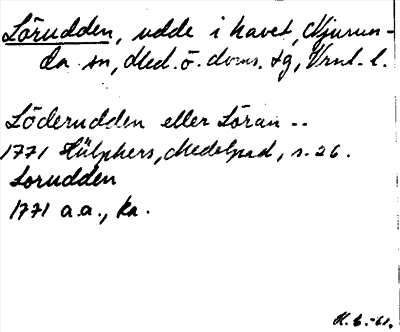 Lörudden, udde i havet, Njurun-
da sn, Med. ö. doms. tg, Vrnl. l.
Löderudden eller Löran --
1771 Hülphers, Medelpad, s. 26.
Lorudden
1771 a.a., ka.
H. G. -61.